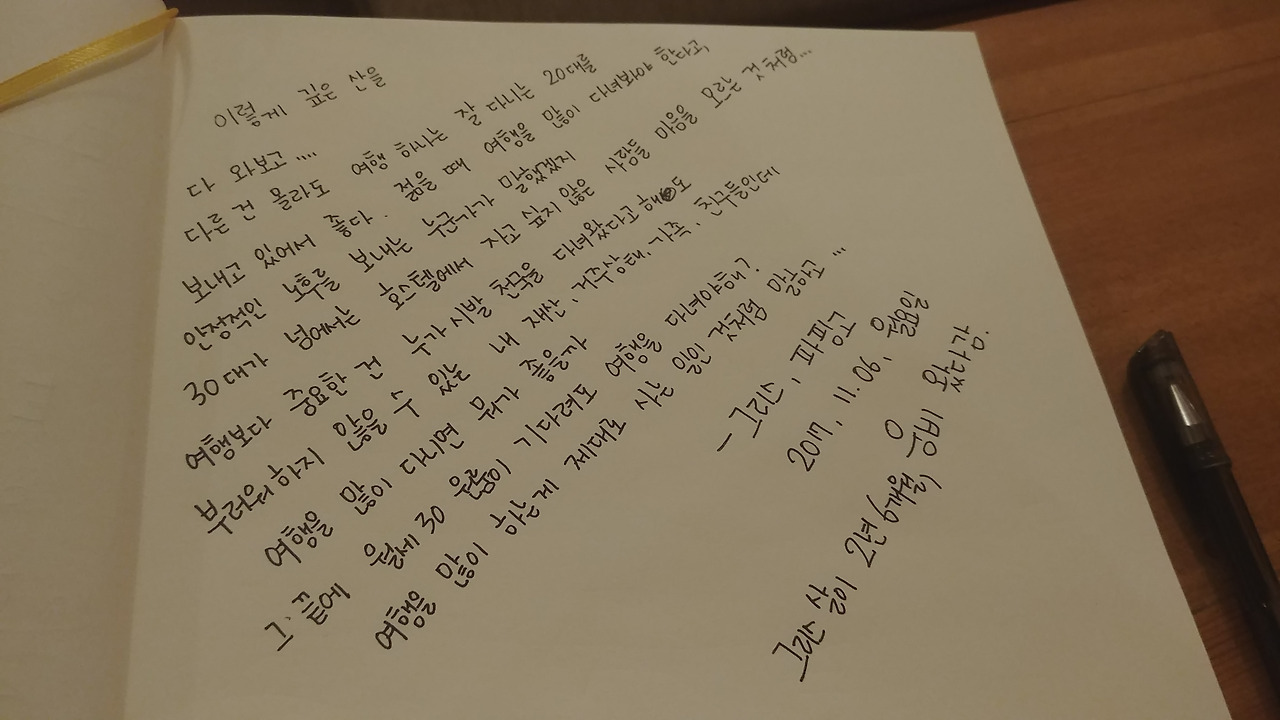 이렇게 깊은 산을
다 와보고 ....
다른 건 몰라도 여행 하나는 잘 다니는 20대를
보내고 있어서 좋다. 젊을 때 여행을 많이 다녀봐야 한다고,
안정적인 노후를 보내는 누군가가 말했겠지
30대가 넘어서는 호스텔에서 자고 싶지 않은 사람들 마음을 모르는 것처럼...
여행보다 중요한 건 누가 시발 천국을 다녀왔다고 해도
부러워하지 않을 수 있는 내 재산, 거주상태, 가족, 친구들인데
여행을 많이 다니면 뭐가 좋을까
그 끝에 월세 30 원룸이 기다려도 여행을 다녀야해?
여행을 많이 하는게 제대로 사는 일인 것처럼 말하고 ...
- 그리스, 파핑고
2017. 11. 06. 월요일
그리스 살이 2년 6개월, 웅비 왔다감.